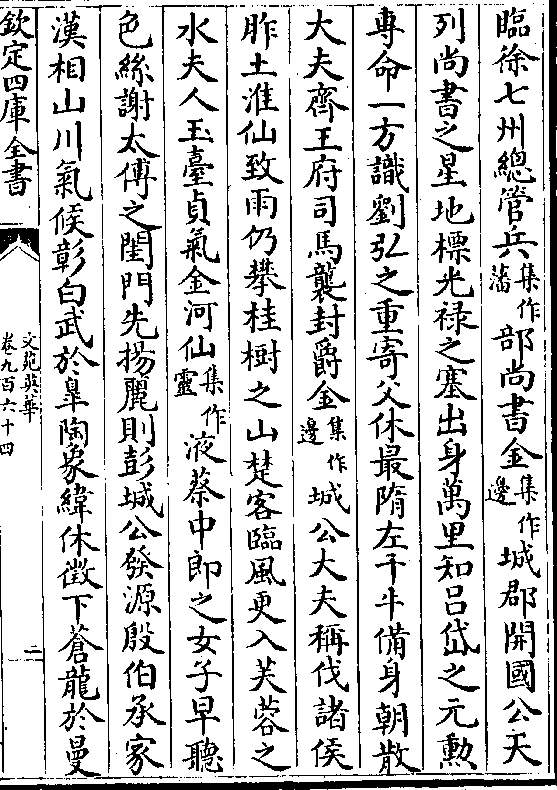 臨徐七州總管兵集作藩部尚書金集作邊城郡開國公天
列尚書之星地標光禄之塞出身萬里知吕岱之元勲
専命一方識劉弘之重寄父休最隋左千牛備身朝散
大夫齊王府司馬襲封爵金集作邊城公大夫稱伐諸侯
胙土淮仙致雨仍攀桂樹之山楚客臨風更入芙蓉之
水夫人玉臺貞氣金河仙集作靈液蔡中郎之女子早聽
色絲謝太傅之閨門先揚麗則彭城公發源殷伯承家
漢相山川氣候彰白武於臯陶象緯休徴下蒼龍於曼
欽定四庫全書
文苑英華
卷九百六十四
二